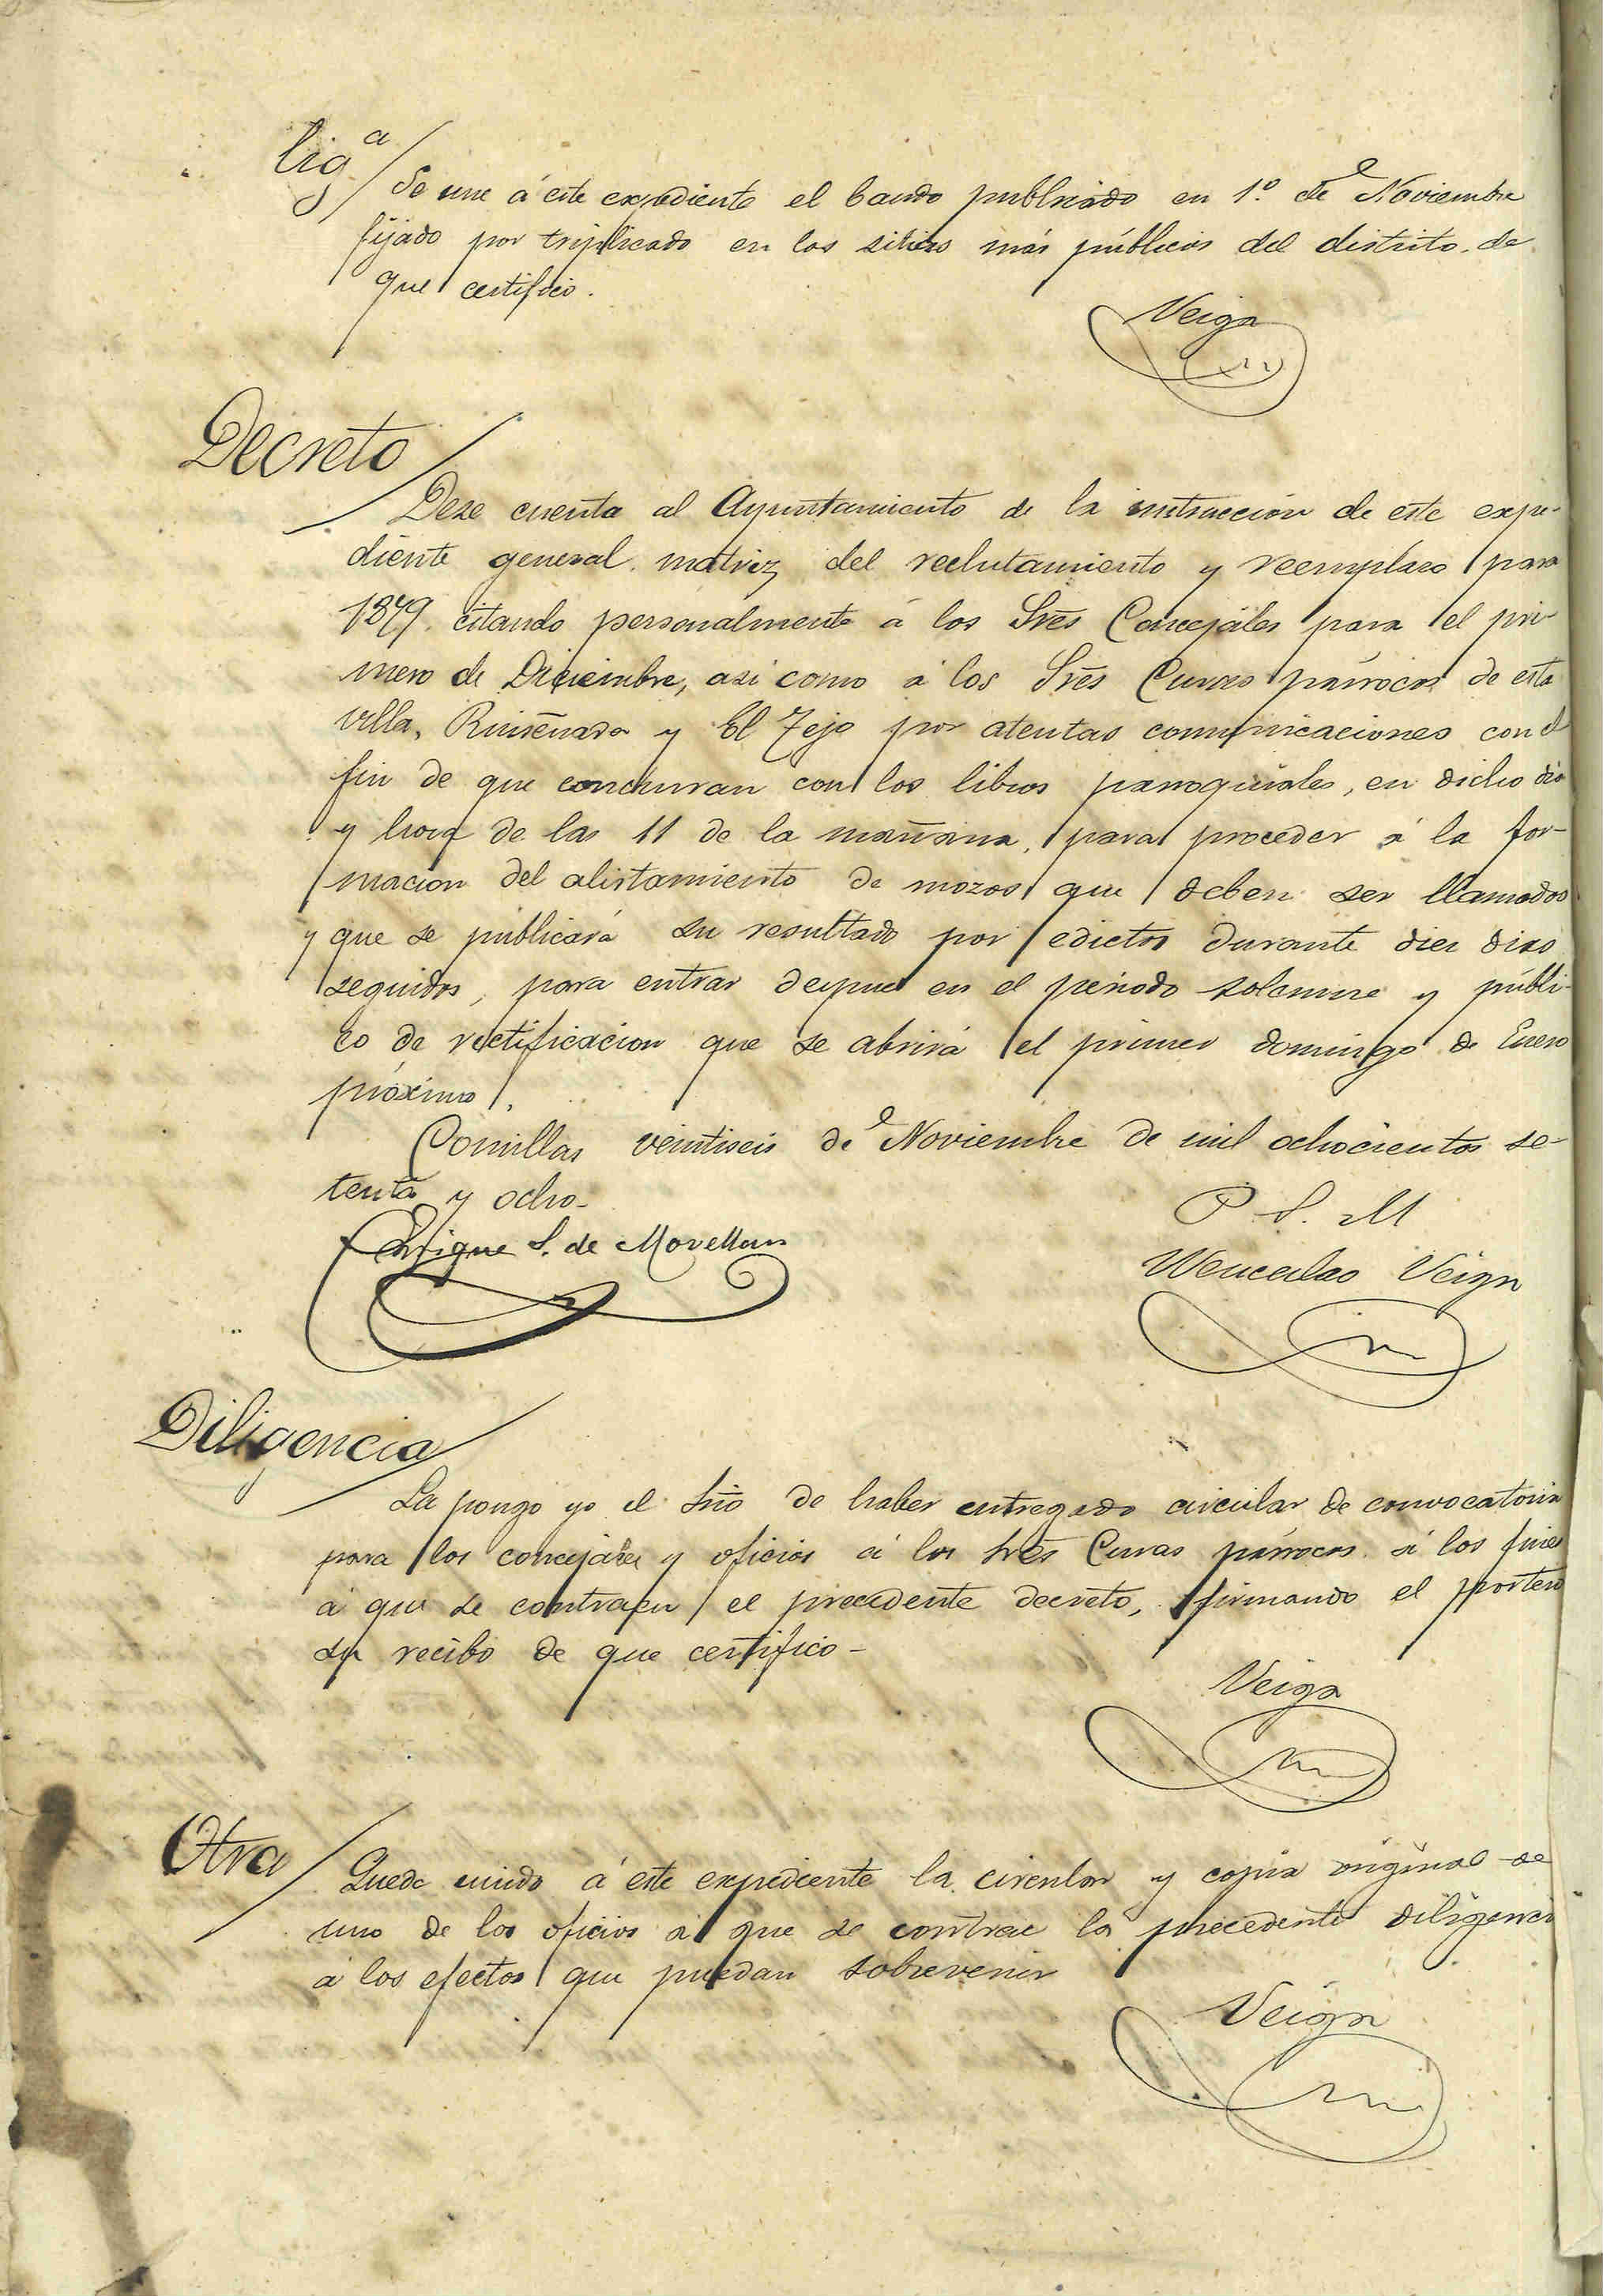 Lig.ª
Se une á este expediente el bando publicado en 1.º de Noviembre
fijado por triplicado en los sitios más públicos del distrito, de
que certifico.
Veiga
Decreto
Dese cuenta al Ayuntamiento de la instruccion de este expe-
diente general matriz del reclutamiento y reemplazo para
1879, citando personalmente á los Sres Concejáles para el pri-
mero de Diciembre, asi como á los Sres Curas párrocos de esta
villa, Ruiseñada y El Tejo por atentas comunicaciones con el
fin de que concurran con los libros parroquiales, en dicho dia
y hora de las 11 de la mañana, para proceder á la for-
macion del alistamiento de mozos que deben ser llamados
y que se publicará su resultado por edictos durante diez dias
seguidos, para entrar depues en el periodo solemne y públi-
co de rectificacion que se abrirá el primer domingo de Enero
próximo.
Comillas veintiseis de Noviembre de mil ochocientos se-
tenta y ocho-
P. S. M
Enrique S. de Movellan
Wenceslao Veiga
Diligencia
La pongo yo el Srio de haber entregado circular de convocatoria
para los concejales y oficios á los Sres Curas párrocos á los fines
á que se contrae el precedente decreto, firmando el portero
su recibo de que certifico-
Veiga
Otra
Queda unido á este expediente la circular y copia original de
uno de los oficios á que se contrae la precedente diligencia
á los efectos que puedan sobrevenir
Veiga